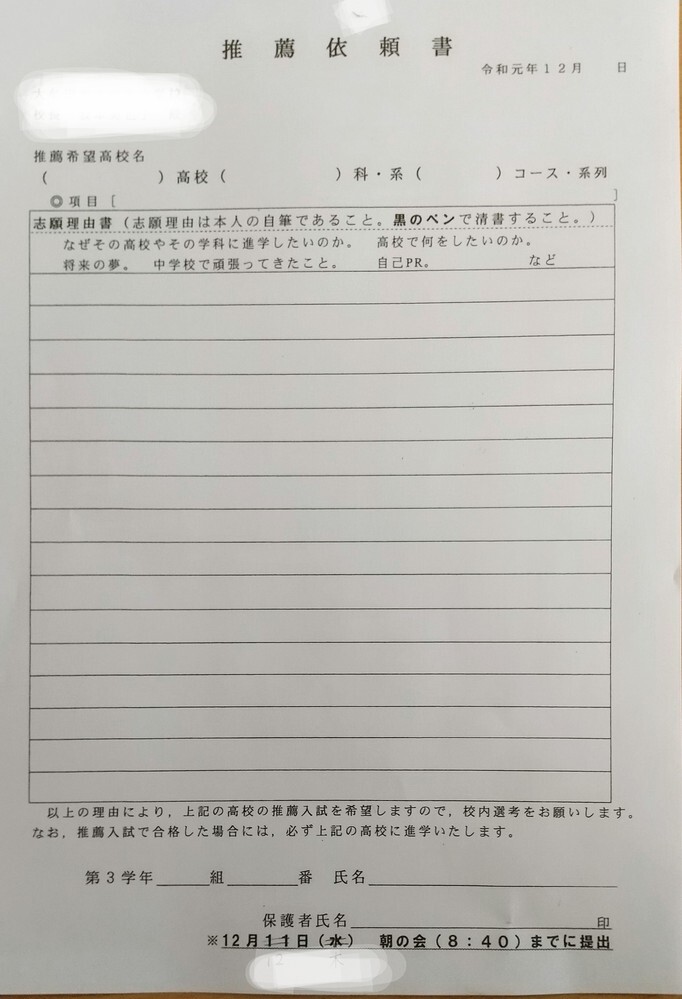 推薦依頼書
令和元年12月　　日
推薦希望高校名
（　　　　　　　）高校（　　　　　　　）科・系（　　　　　）コース・系列
◎項目［　　　　　　　　　　　　　　　　　　　　　　　　　］
志願理由書（志願理由は本人の自筆であること。黒のペンで清書すること。）
なぜその高校やその学科に進学したいのか。　高校で何をしたいのか。
将来の夢。　中学校で頑張ってきたこと。　自己PR。　　　　など
以上の理由により，上記の高校の推薦入試を希望しますので，校内選考をお願いします。
なお，推薦入試で合格した場合には，必ず上記の高校に進学いたします。
第3学年＿＿＿組＿＿＿番　氏名＿＿＿＿＿＿＿＿＿＿
保護者氏名＿＿＿＿＿＿＿＿＿＿印
※12月11日（水）　朝の会（8：40）までに提出
12